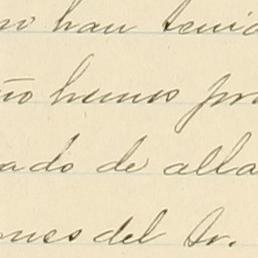 no han tenid
ño hemos pro
ado de alla
ones del Sr.